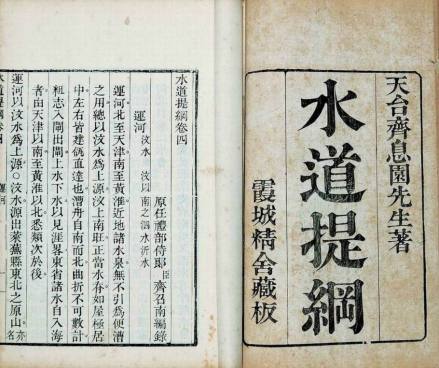 天台齊息園先生著
水道提綱
霞城精舍藏板
水道提綱卷四
原任禮部侍郎臣齊召南編錄
運河 汶水 汶以南之泗水沂水
運河北至天津南至黃淮近地諸水泉無不引爲便漕
之用總以汶水爲上源汶上南莊正當水脊如屋極居
中左右皆建瓴直達也漕舟自南而北曲折不可數計
粗志入閘出閘上水下水以見涯畧東省諸水自入海
者由天津以南至黃淮以北悉類次於後
運河以汶水爲上源○汶水源出萊蕪縣東北之原山亦名